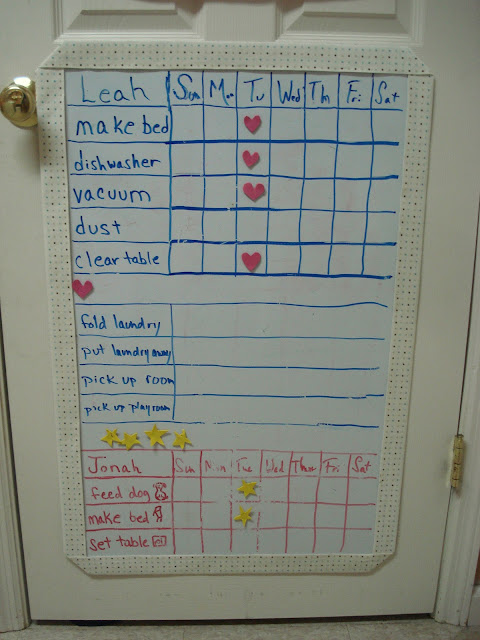 Leah Sun Mon Tu Wed Thu Fri Sat
make bed
dishwasher
vacuum
dust
clear table
fold laundry
put laundry away
pick up room
pick up playroom
Jonah Sun Mon Tue Wed Thur Fri Sat
feed dog
make bed
set table